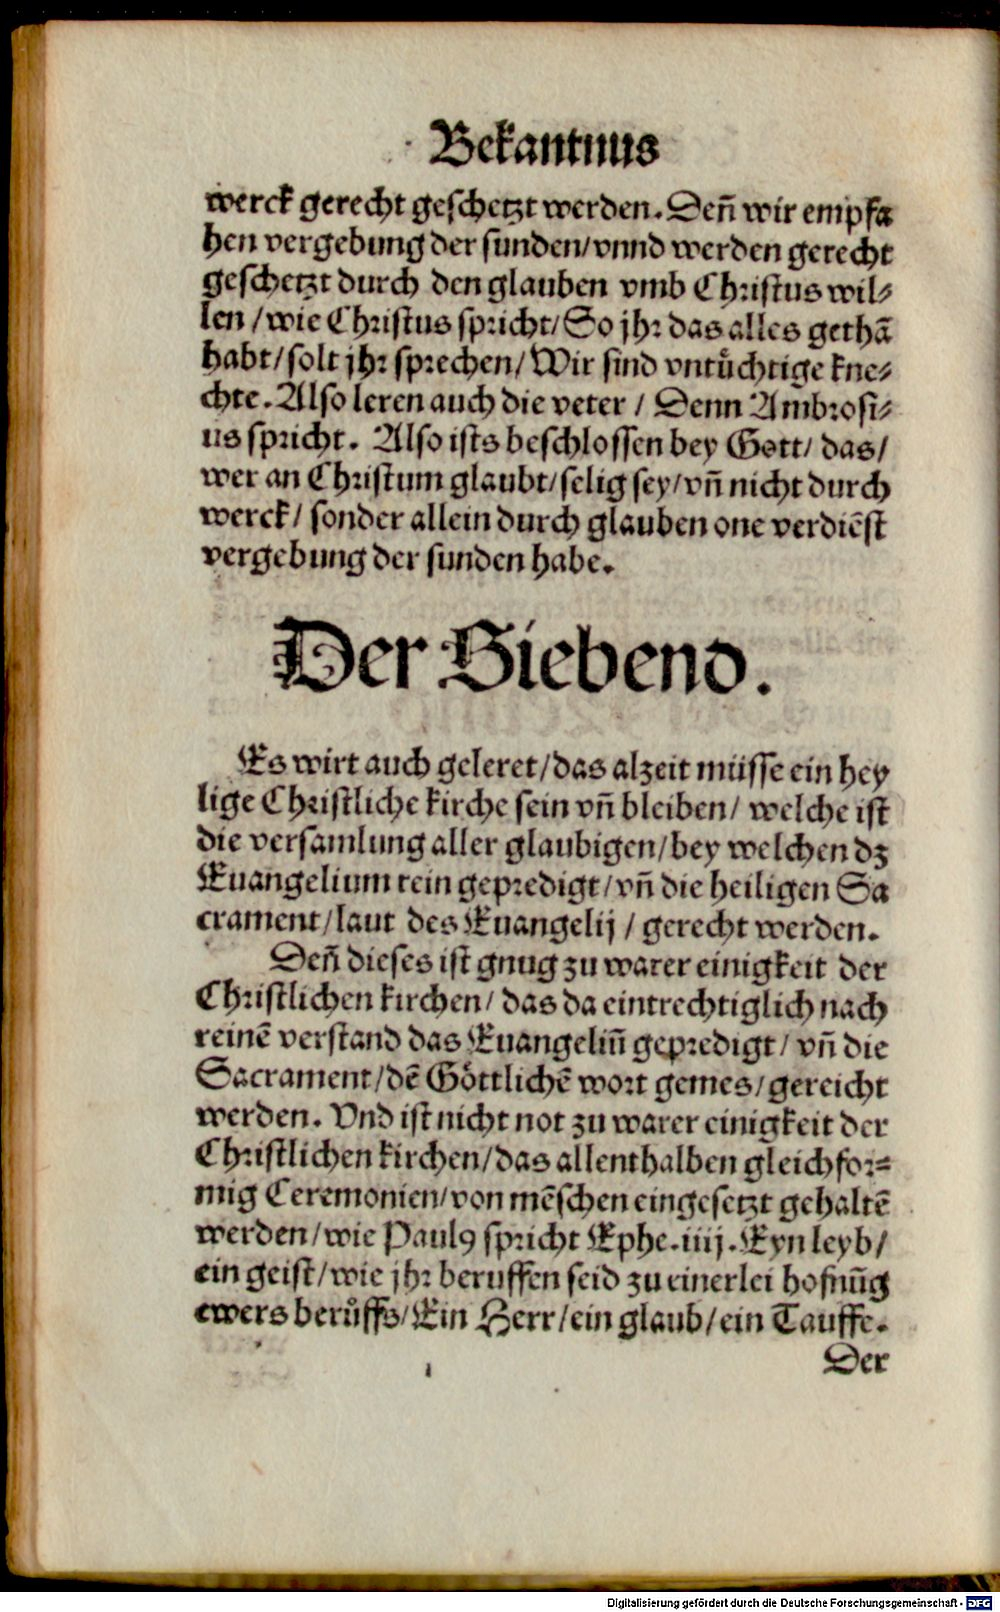 Bekantnus
werck gerecht geschetzt werden. Deñ wir empfa
hen vergebung der sunden/vnnd werden gerecht
geschetzt durch den glauben vmb Christus wil⸗
len /wie Christus spricht/So jhr das alles gethã
habt/solt jhr sprechen/Wir sind vntůchtige kne⸗
chte. Also leren auch die veter / Denn Ambrosi⸗
us spricht. Also ists beschlossen bey Gott/ das/
wer an Christum glaubt/selig sey/vñ nicht durch
werck/ sonder allein durch glauben one verdiẽst
vergebung der sunden habe.
Der Siebend.
Es wirt auch geleret/das alzeit müsse ein hey
lige Christliche kirche sein vñ bleiben/ welche ist
die versamlung aller glaubigen/bey welchen dz
Euangelium rein gepredigt/vñ die heiligen Sa
crament/laut des Euangelij / gerecht werden.
Deñ dieses ist gnug zu warer einigkeit der
Christlichen kirchen/ das da eintrechtiglich nach
reinẽ verstand das Euangeliũ gepredigt/ vñ die
Sacrament/dẽ Göttlichẽ wort gemes/gereicht
werden. Vnd ist nicht not zu warer einigkeit der
Christlichen kirchen/das allenthalben gleichfor⸗
mig Ceremonien/von mẽschen eingesetzt gehaltẽ
werden/wie Paulꝰ spricht Ephe.iiij.Eyn leyb/
ein geist/wie jhr beruffen seid zu einerlei hofnũg
ewers berůffs/Ein Herr/ein glaub/ein Tauffe.
Der
Digitalisierung gefördert durch die Deutsche Forschungsgemeinschaft - DFG